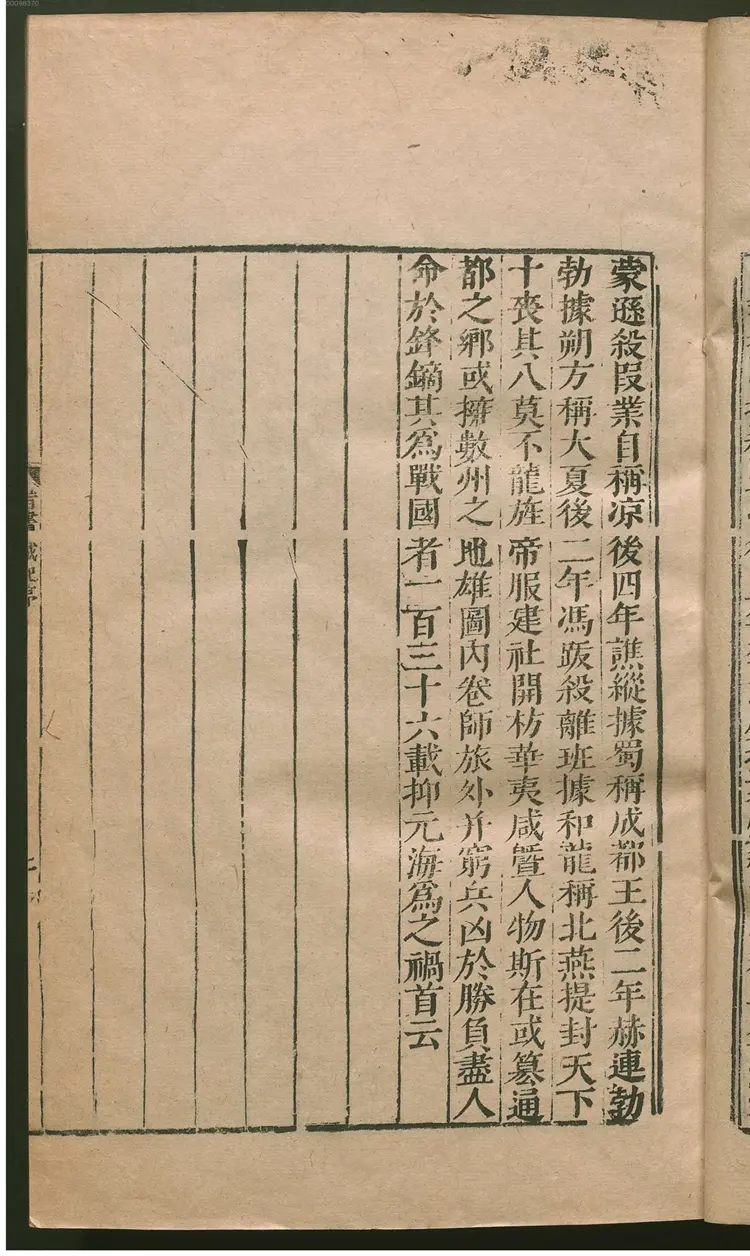 蒙遜殺叚業自稱凉後四年譙縱據蜀稱成都王後二年赫連勃
勃據朔方稱大夏後二年馮跋殺離班據和龍稱北燕提封天下
十喪其八莫不龍旌帝服建社開枋華夷咸曁人物斯在或篡通
都之鄉或擁數州之地雄圖內卷師旅外并窮兵凶於勝負盡人
命於鋒鏑其爲戰國者一百三十六載抑元海爲之禍首云
00068370